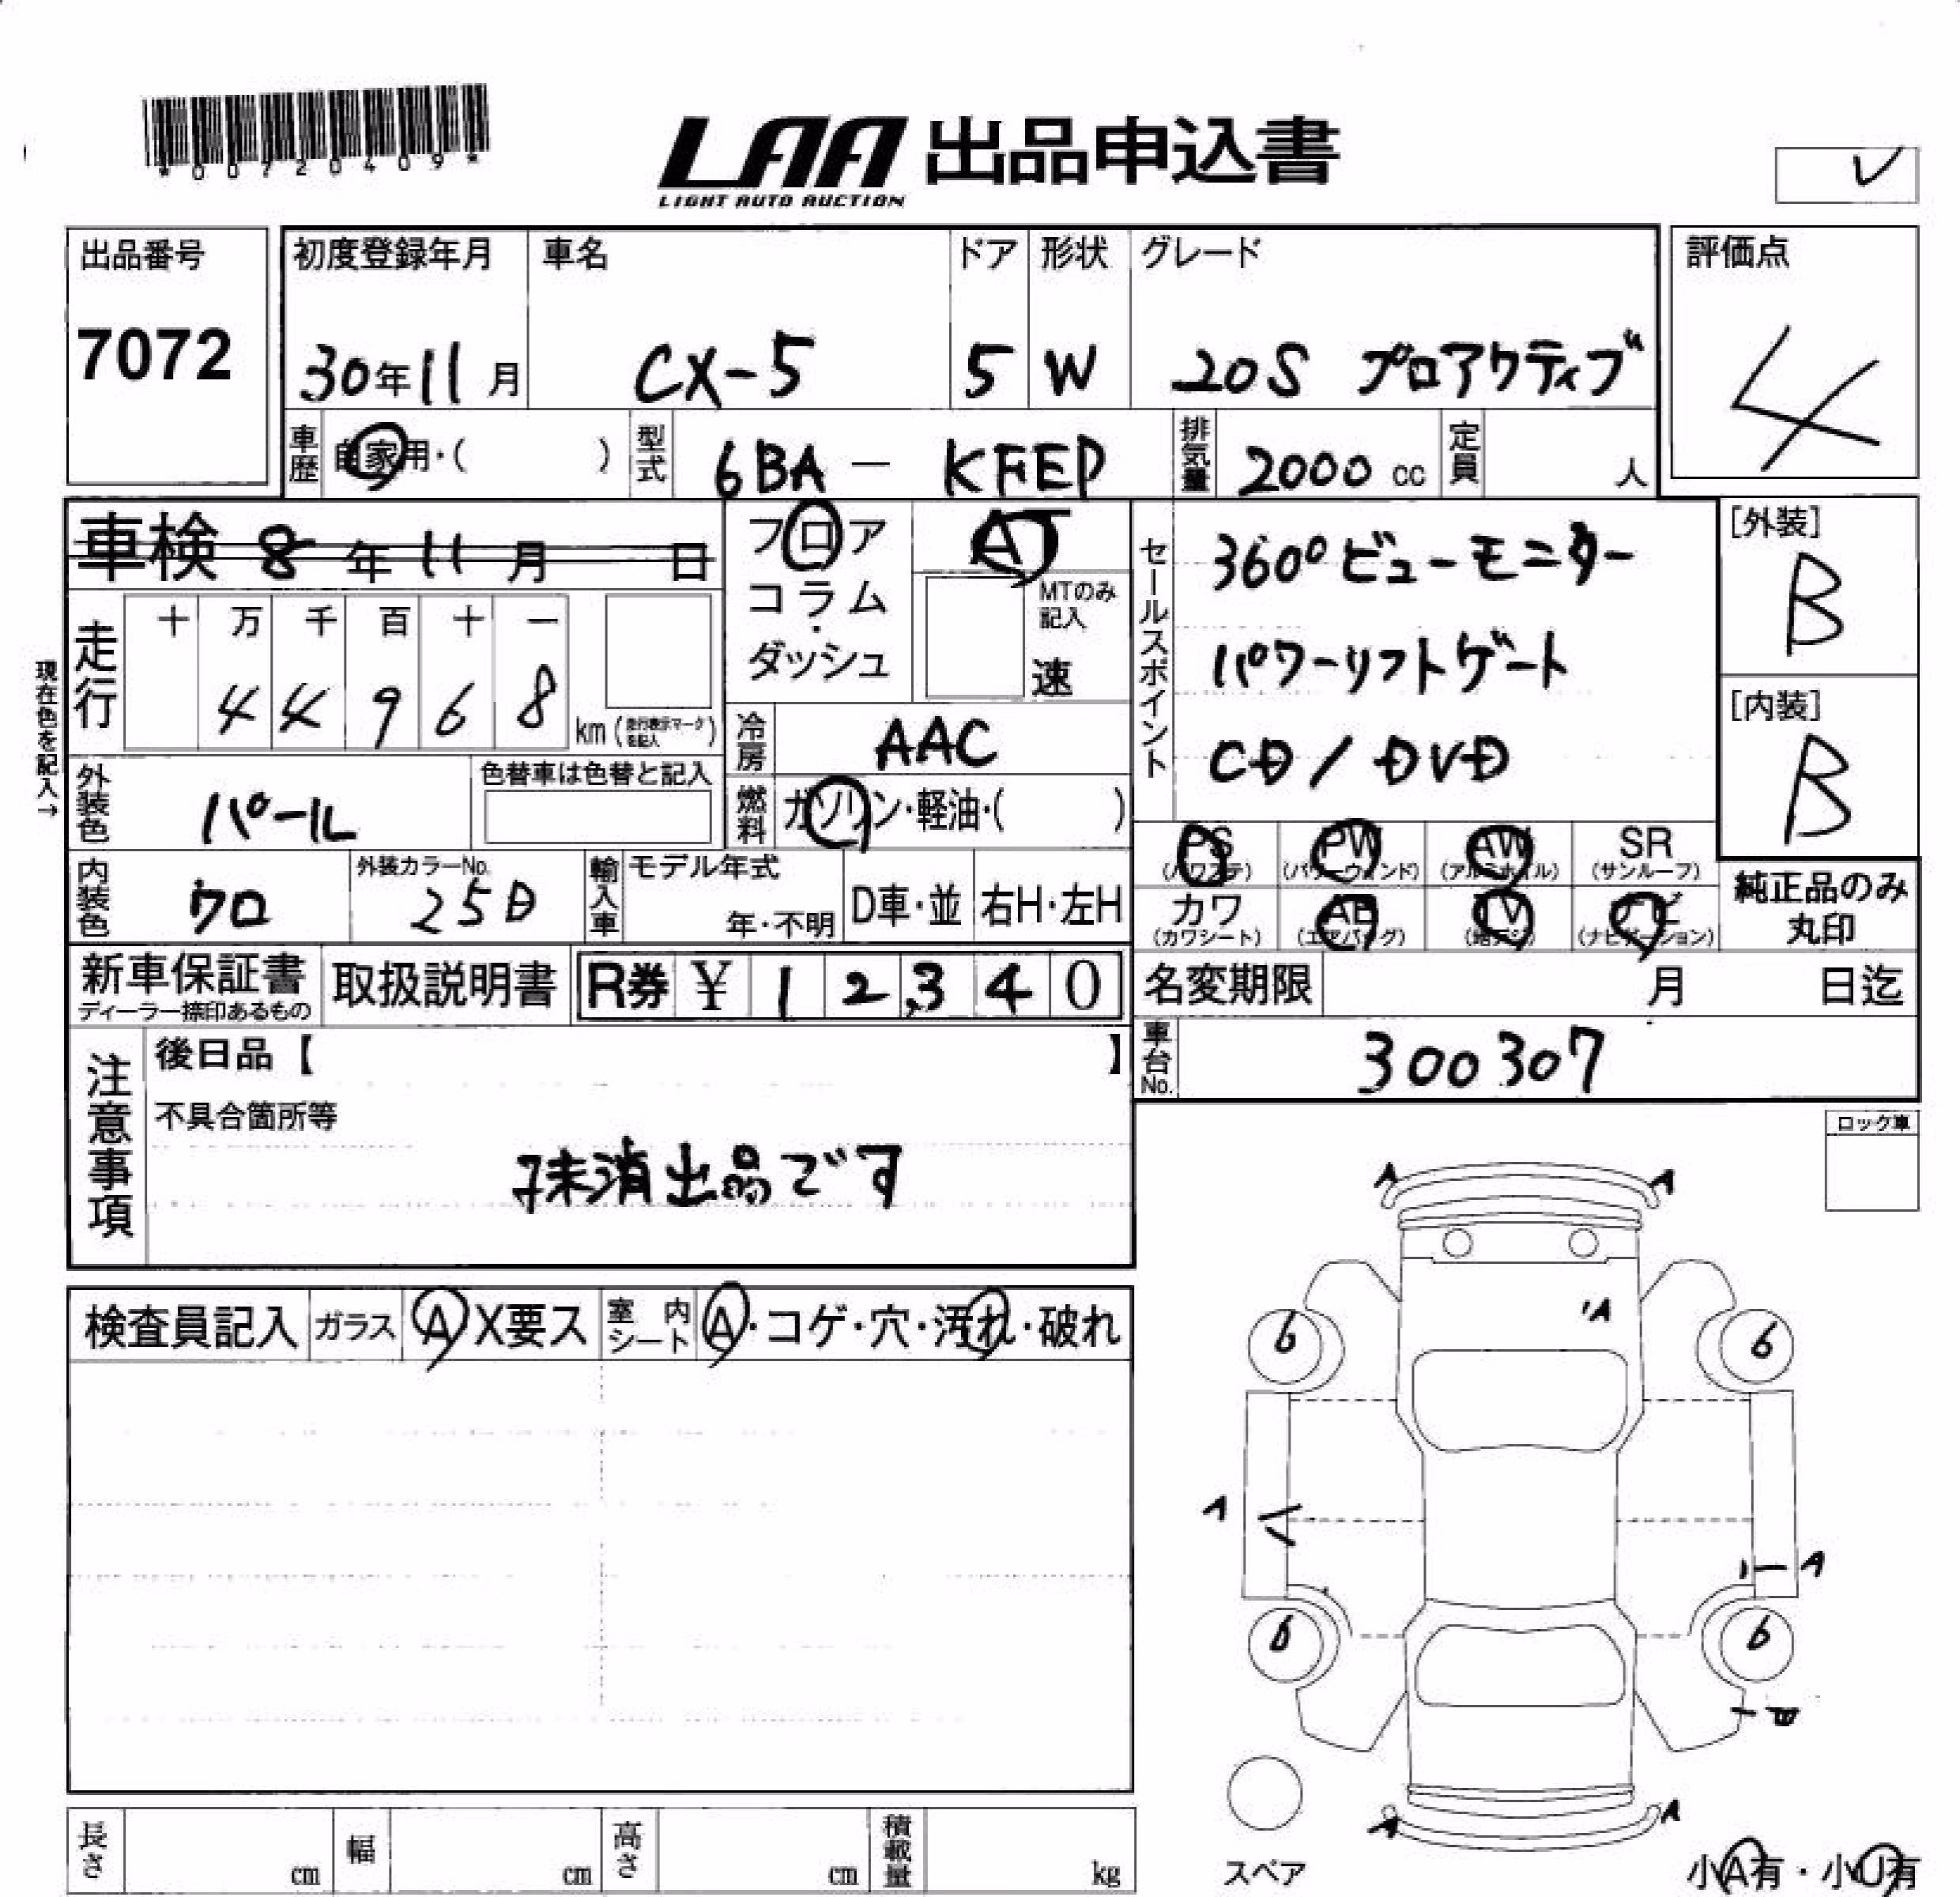 *00720409*
LAA 出品申込書
LIGHT AUTO AUCTION
レ
出品番号
7072
初度登録年月
30年11月
車名
CX-5
ドア
5
形状
W
グレード
20S プロアクティブ
評価点
4
車歴 自家用・( )
型式 6BA - KFEP
排気量 2000 cc
定員 人
車検 8年11月 日
走行
十 万 千 百 十 一
4 4 9 6 8
km (走行表示マークを記入)
現在色を記入→
外装色 パール
色替車は色替と記入
内装色 クロ
外装カラーNo. 25D
フロア
コラム・
ダッシュ
AT
MTのみ記入
速
冷房 AAC
燃料 ガソリン・軽油・( )
輸入車
モデル年式
年・不明
D車・並
右H・左H
セールスポイント
360°ビューモニター
パワーリフトゲート
CD / DVD
[外装]
B
[内装]
B
PS (パワステ)
PW (パワーウィンド)
AW (アルミホイル)
SR (サンルーフ)
カワ (カワシート)
AB (エアバッグ)
TV (地デジ)
ナビ (ナビゲーション)
純正品のみ
丸印
新車保証書
ディーラー捺印あるもの
取扱説明書
R券 ¥ 1 2,3 4 0
名変期限 月 日迄
車台No. 300307
注意事項
後日品【 】
不具合箇所等
抹消出品です
ロック車
検査員記入
ガラス A X要ス
室内シート A・コゲ・穴・汚れ・破れ
A A
A
6 6
A
A
6 6
A A
スペア
小A有・小U有
長さ cm
幅 cm
高さ cm
積載量 kg